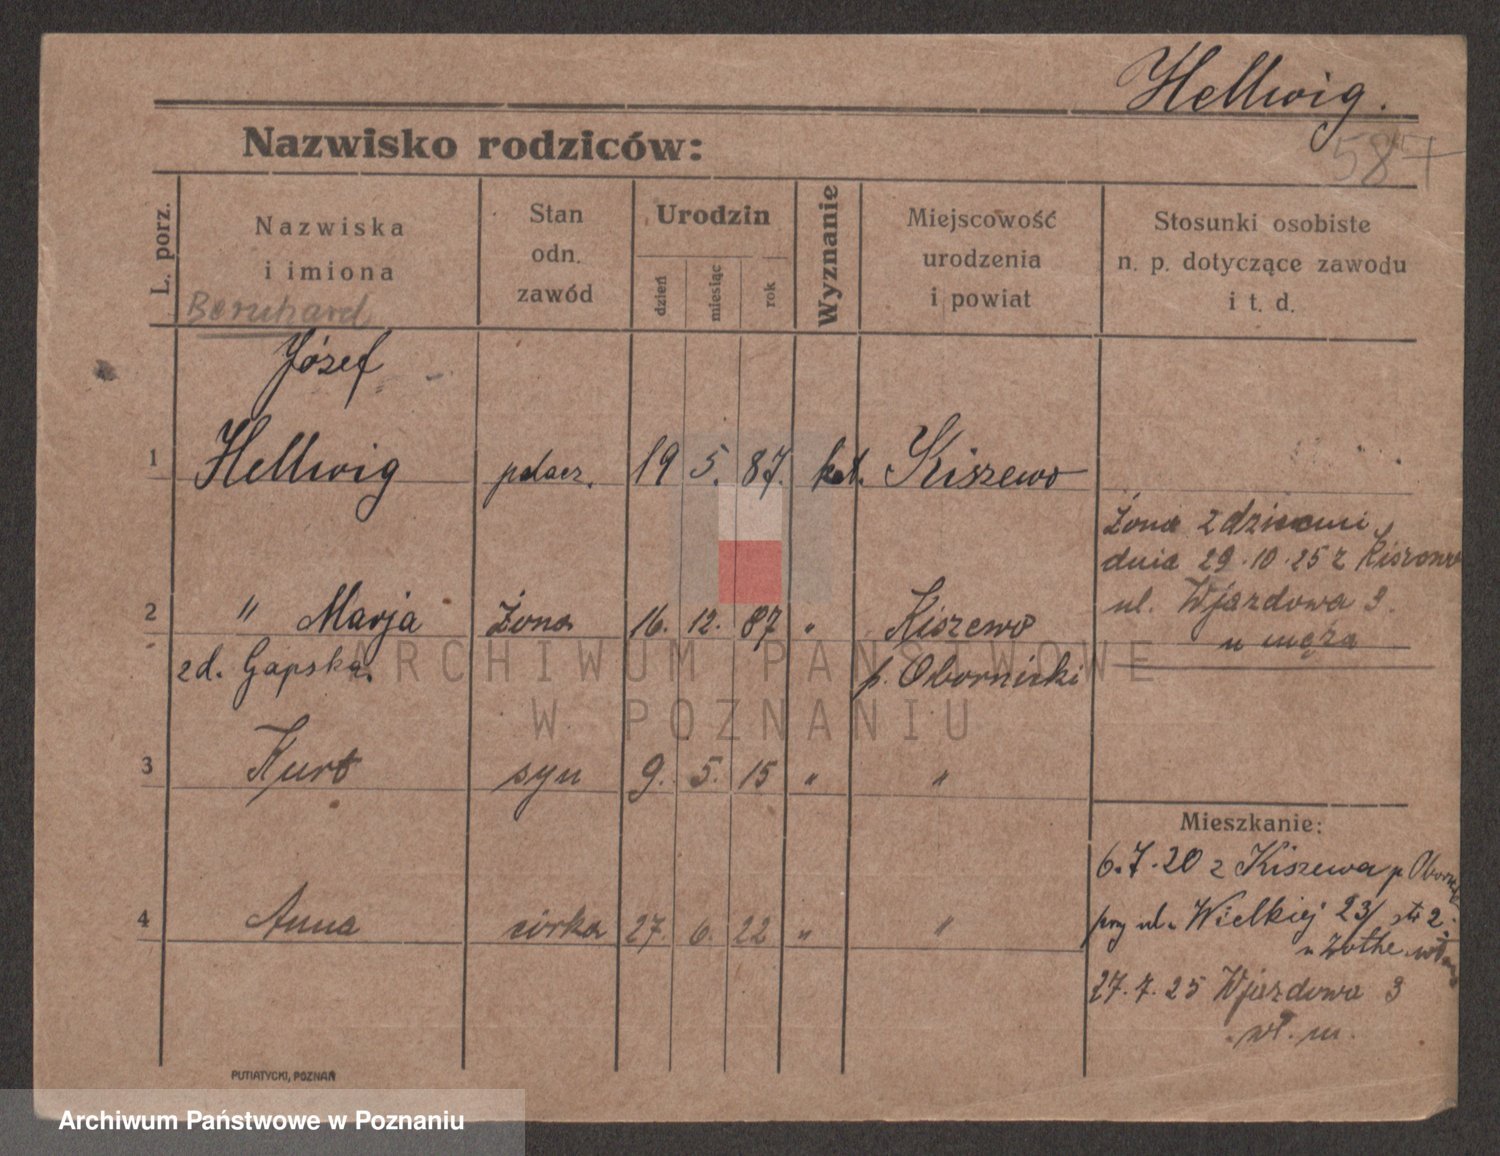 Hellwig.
587
Nazwisko rodziców:
L. porz.
Nazwiska
i imiona
Stan
odn.
zawód
Urodzin
dzień
miesiąc
rok
Wyznanie
Miejscowość
urodzenia
i powiat
Stosunki osobiste
n. p. dotyczące zawodu
i t. d.
Bernhard
Józef
1 Hellwig 19 5. 87. kat. Kiszewo
Żona z dziećmi
dnia 29.10.25 z
ul. Wjazdowa 3.
u męża
2 " Marja Żona 16. 12. 87 " Kiszewo
zd. Gapska. p. Obornicki
3 Kurt syn 9. 5. 15 " "
4 Anna córka 27. 6. 22 " "
Mieszkanie:
6.7.20 z Kiszewa p
przy ul. Wielkiej 23/
27.7.25 Wjazdowa 3
wł. m.
PUTIATYCKI, POZNAŃ
ARCHIWUM PAŃSTWOWE
W POZNANIU
Archiwum Państwowe w Poznaniu